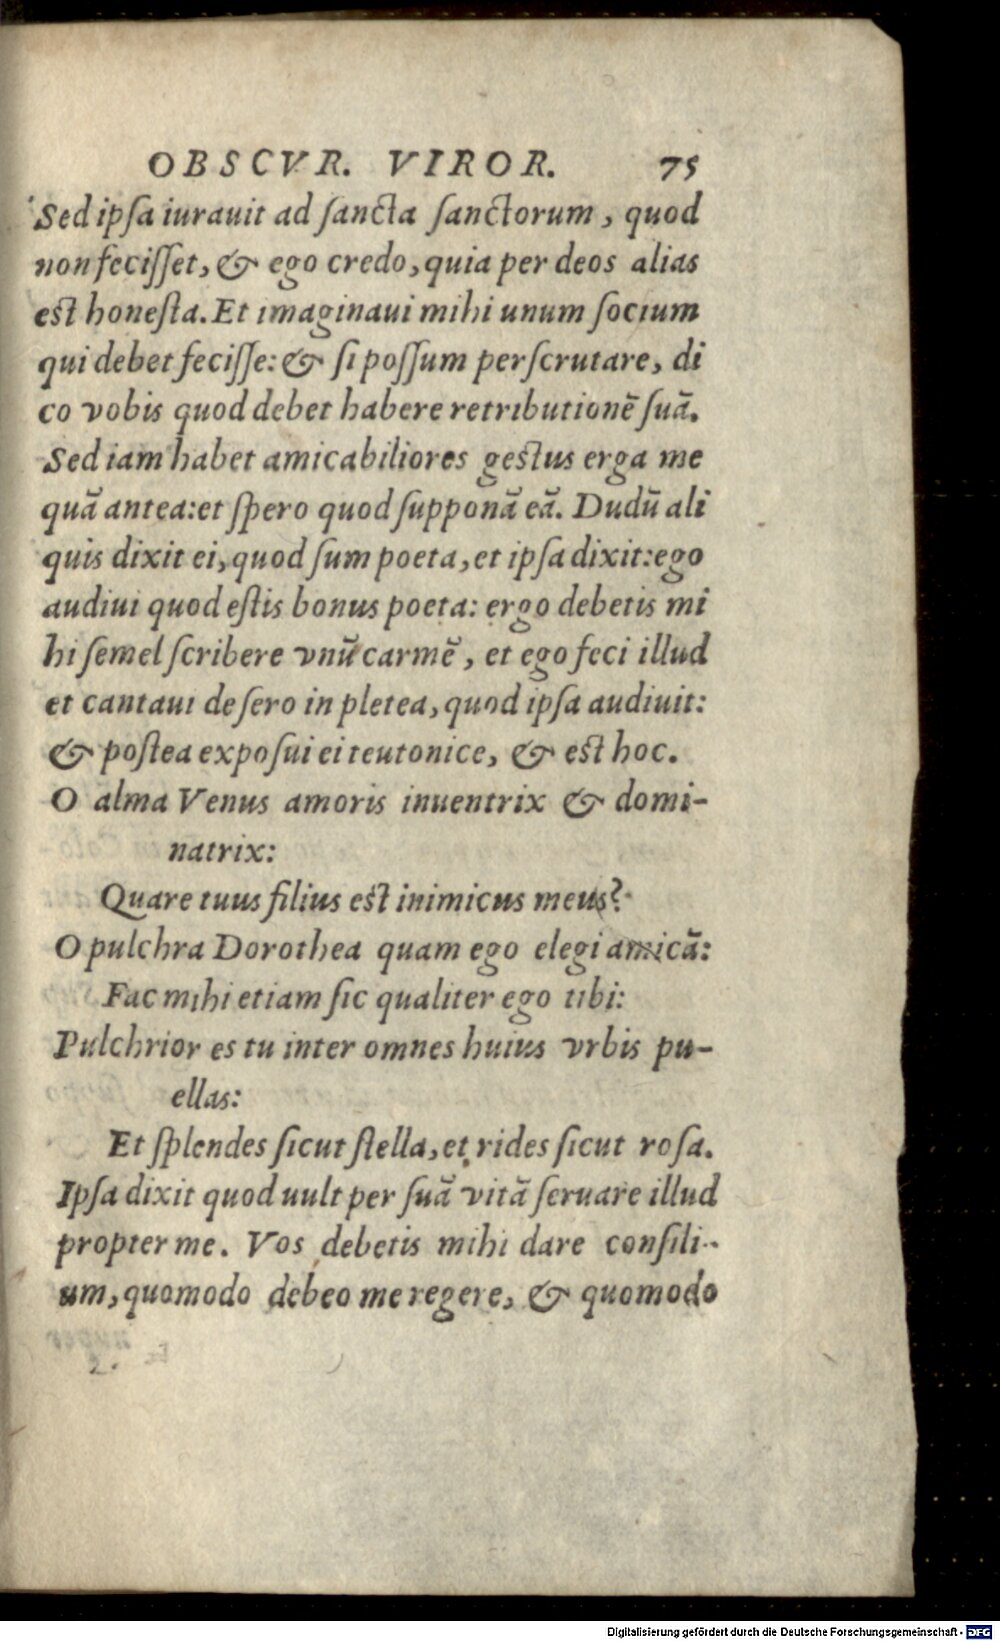 OBSCVR. VIROR. 75
Sed ipſa iurauit ad ſancta ſanctorum, quod
non feciſſet, & ego credo, quia per deos alias
est honeſta. Et imaginaui mihi unum ſocium
qui debet feciſſe: & ſi poſſum perſcrutare, di
co vobis quod debet habere retributionē ſuā.
Sed iam habet amicabiliores gestus erga me
quā antea: et ſpero quod ſupponā eā. Dudū ali
quis dixit ei, quod ſum poeta, et ipſa dixit: ego
audiui quod eſtis bonus poeta: ergo debetis mi
hi ſemel ſcribere vnū carmē, et ego feci illud
et cantaui de ſero in pletea, quod ipſa audiuit:
& poſtea expoſui ei teutonice, & est hoc.
O alma Venus amoris inuentrix & domi-
natrix:
Quare tuus filius est inimicus meus?
O pulchra Dorothea quam ego elegi amicā:
Fac mihi etiam ſic qualiter ego tibi:
Pulchrior es tu inter omnes huius vrbis pu-
ellas:
Et ſplendes ſicut ſtella, et rides ſicut roſa.
Ipſa dixit quod uult per ſuā vitā ſeruare illud
propter me. Vos debetis mihi dare conſili-
um, quomodo debeo me regere, & quomodo
Digitalisierung gefördert durch die Deutsche Forschungsgemeinschaft - DFG